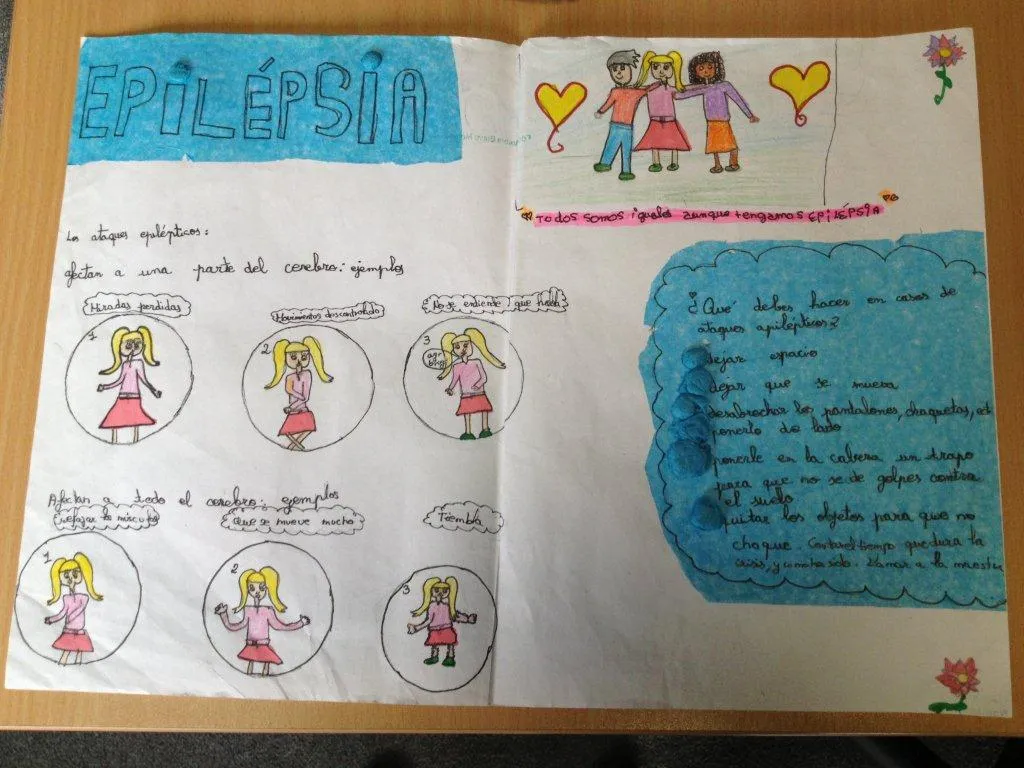 EPILÉPSIA
Los ataques epilépticos:
afectan a una parte del cerebro: ejemplos
Miradas perdidas
Movimientos descontrolado
No se entiende l que habla
1
2
3
Afectan a todo el cerebro: ejemplos
Que se mueve mucho
Tiembla
1
2
3
Todos somos iguales aunque tengamos EPILÉPSIA
¿Qué debes hacer en casos de
ataques apilépticos?
dejar espacio
dejar que se mueva
desabrochar los pantalones, chaquetas, ect
ponerlo de lado
ponerle en la cabeza un trapo
para que no se de golpes contra
el suelo
quitar los objetos para que no
choque. Contar el tiempo que dura la
crisis, y como ha sido. Llamar a la maestra